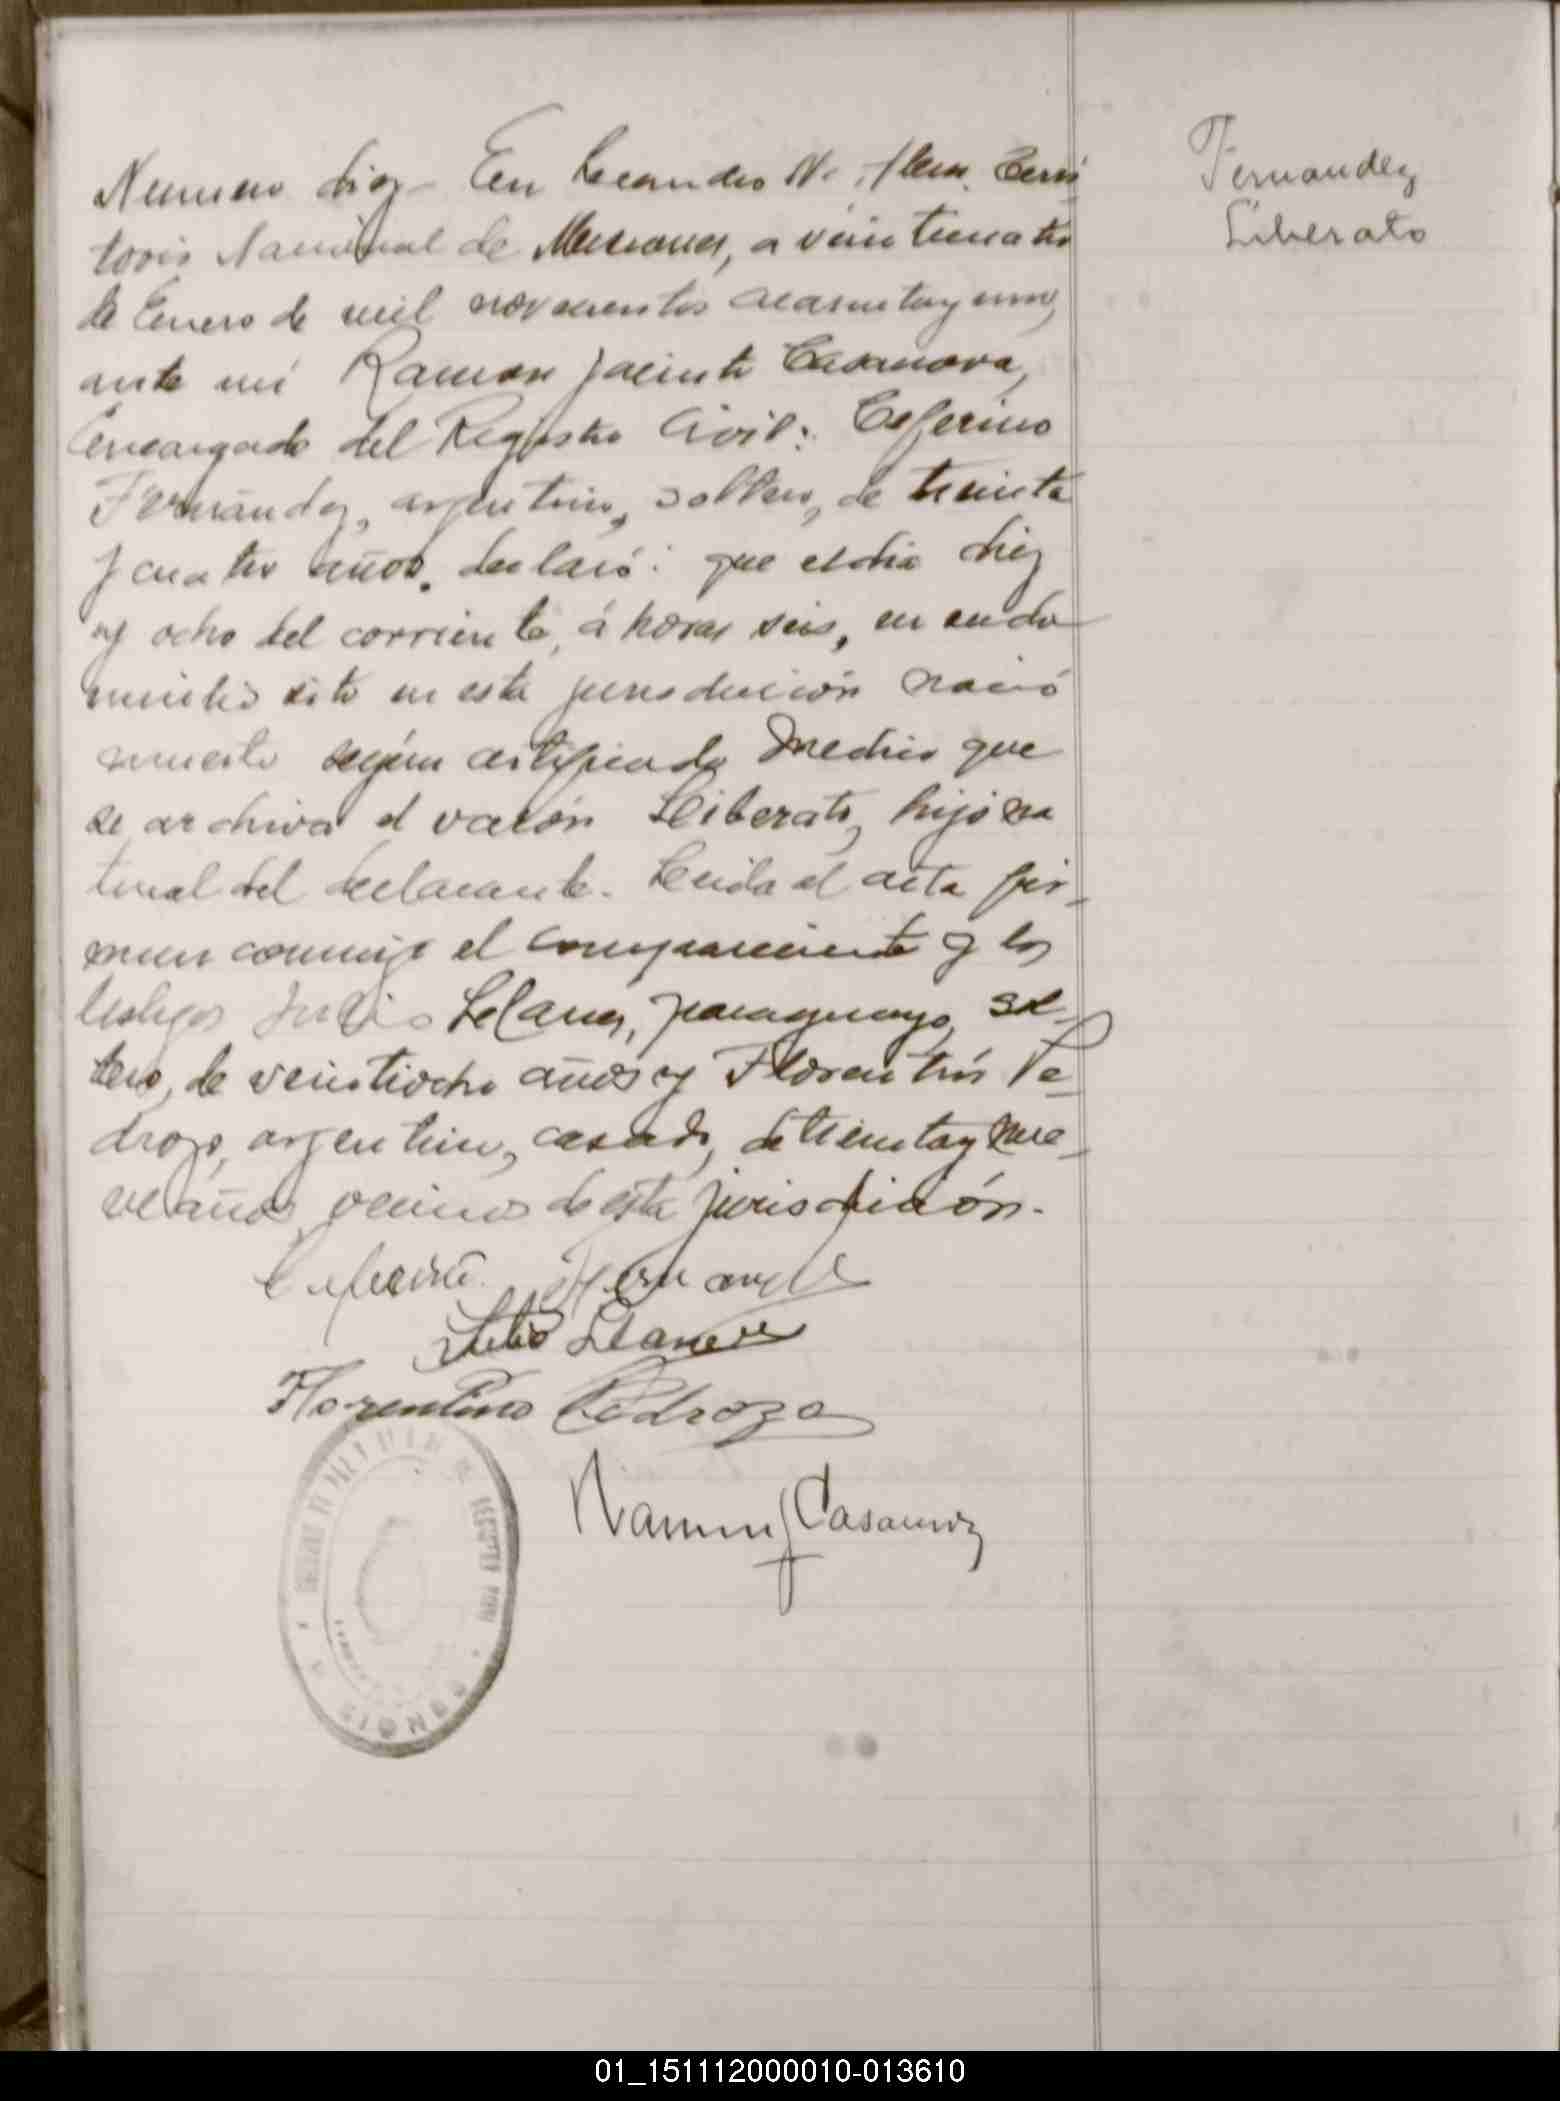 Numero diez - En Leandro N. Alem, Terri
torio Nacional de Misiones, a veinticuatro
de Enero de mil novecientos cuarenta y uno,
ante mi Ramon Jacinto Casanova,
Encargado del Registro Civil: Ceferino
Fernández, argentino, soltero, de treinta
y cuatro años, declaró: que el dia diez
y ocho del corriente, á horas seis, en su do
micilio sito en esta jurisdicción nació
muerto según certificado medico que
se archiva el varón Liberato, hijo na
tural del declarante. Leida el acta fir-
man conmigo el compareciente y los
testigos Julio Llanes, paraguayo, sol
tero, de veintiocho años y Florentín Pe-
drozo, argentino, casado, de treinta y nue-
ve años, vecinos de esta jurisdicción.
Ceferino Fernandez
Julio Llanes
Florentino Pedrozo
Ramon J Casanova
Fernandez
Liberato
MISIONES
01_151112000010-013610